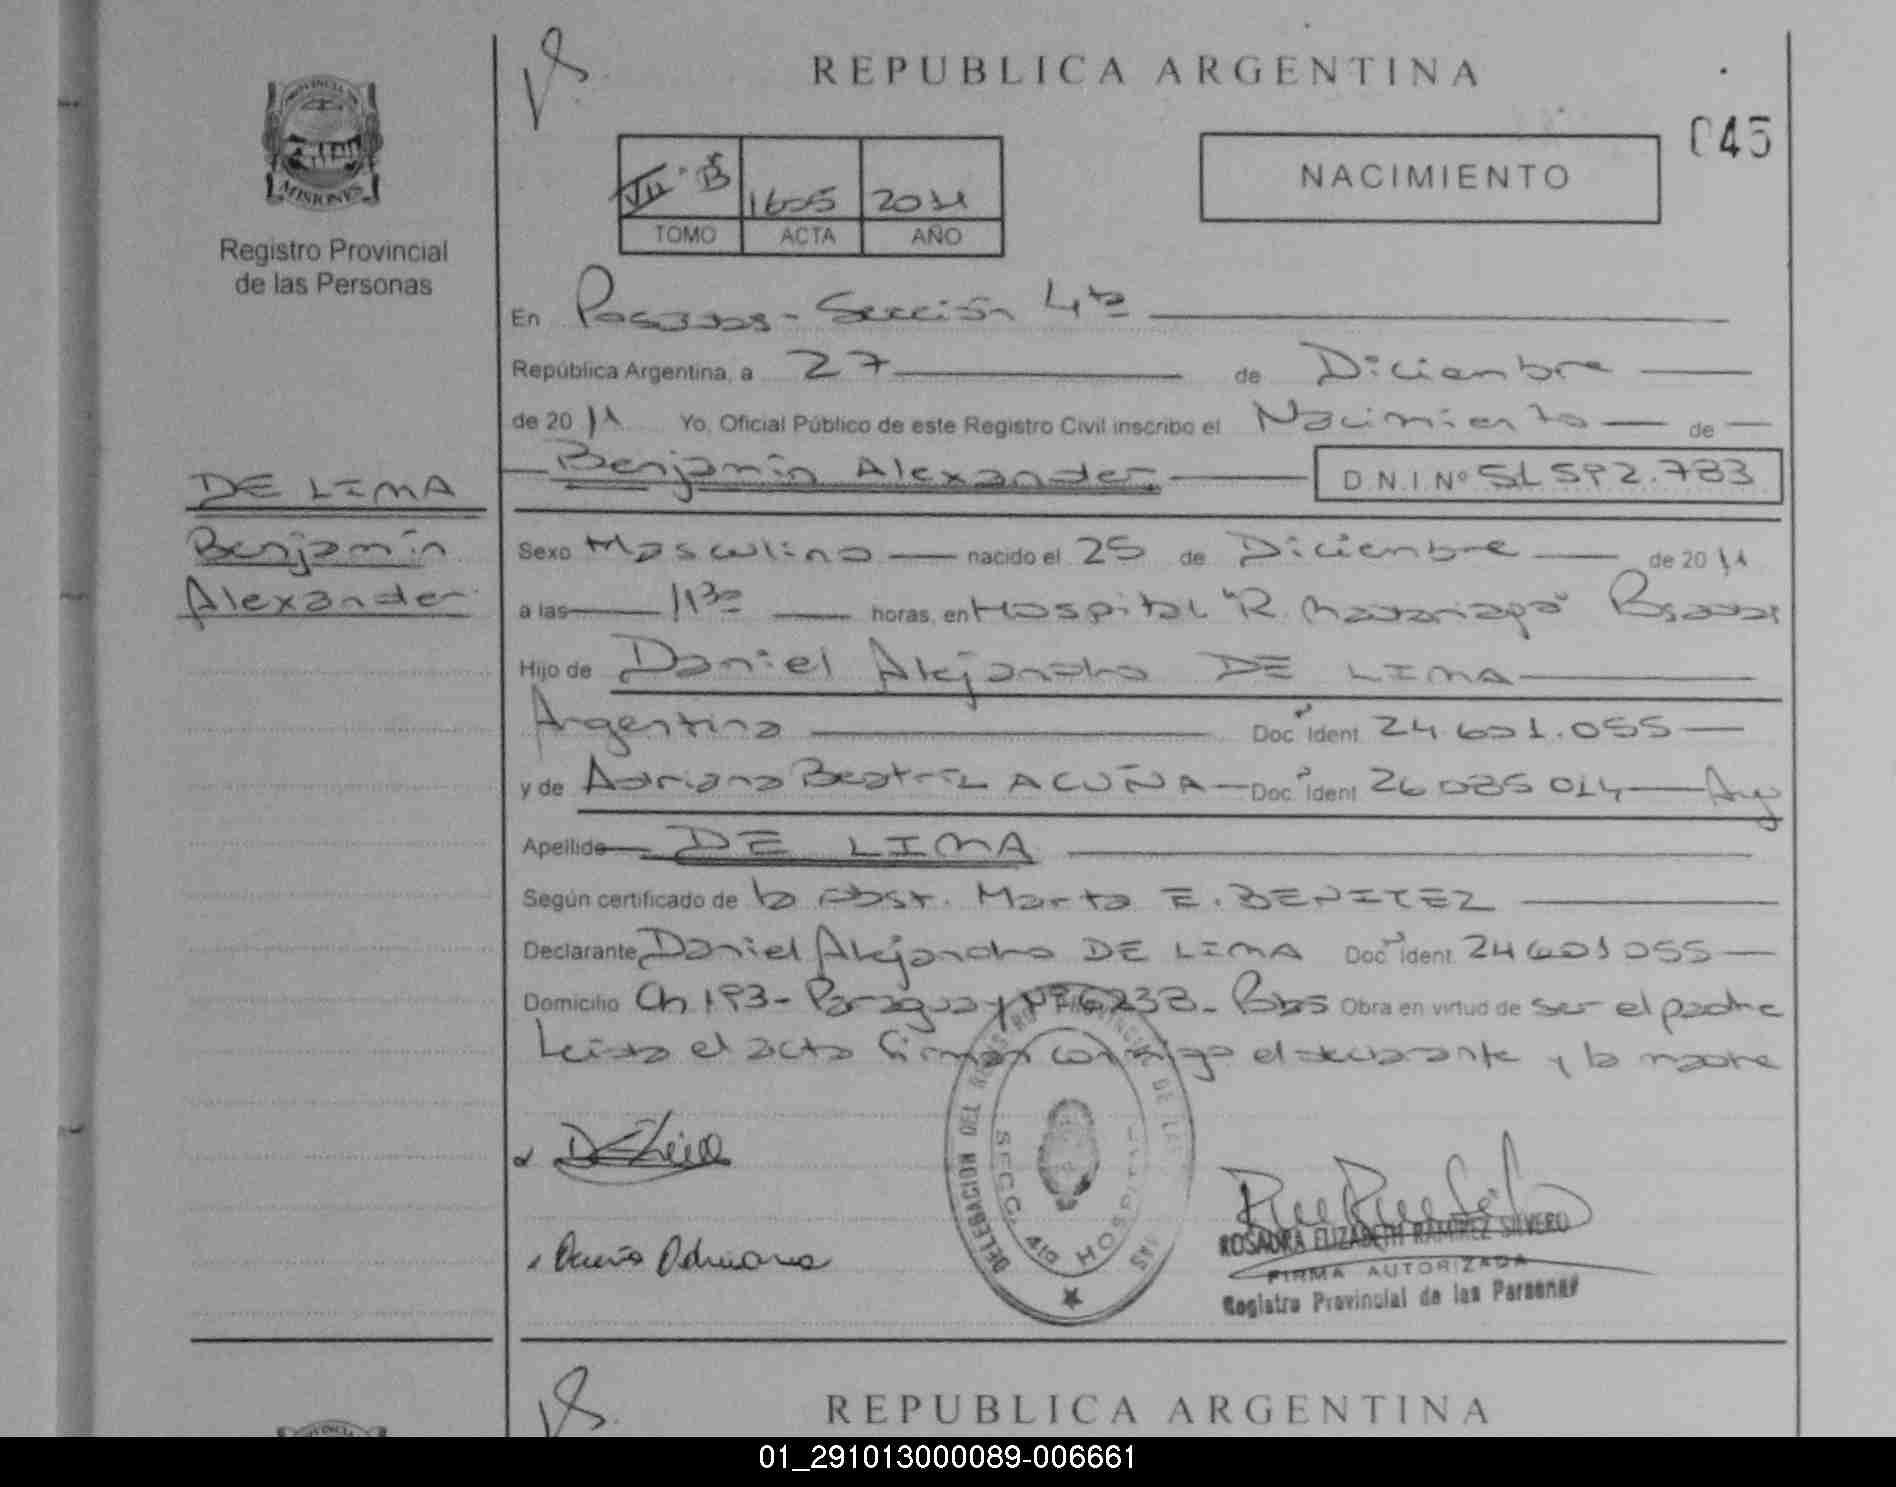 REPUBLICA ARGENTINA
045
PROVINCIA DE
MISIONES
Registro Provincial
de las Personas
1605 2011
TOMO ACTA AÑO
NACIMIENTO
En Posadas - Sección 4ta
República Argentina, a 27 de Diciembre
de 2011 Yo, Oficial Público de este Registro Civil inscribo el Nacimiento de
Benjamín Alexander D.N.I Nº 51.592.783
DE LIMA
Benjamín
Alexander
Sexo Masculino nacido el 25 de Diciembre de 2011
a las 1130 horas, en Hospital "R. Madariaga" Posadas
Hijo de Daniel Alejandro DE LIMA
Argentina Doc Ident 24 601.055
y de Adriana Beatriz ACUÑA Doc Ident 26 085 014 Arg
Apellido DE LIMA
Según certificado de la Obst. Marta E. BENITEZ
Declarante Daniel Alejandro DE LIMA Doc Ident 24601055
Domicilio Ch 193 - Paraguay Nº 6238 - Pdas Obra en virtud de ser el padre
Leida el acta firman conmigo el declarante y la madre
De Lima
Acuña Adriana
DELEGACION DEL REGISTRO PROVINCIAL DE LAS
SECC. 4ta HOSPITAL
ROSAURA ELIZABETH RAMIREZ SILVERO
FIRMA AUTORIZADA
Registro Provincial de las Personas
REPUBLICA ARGENTINA
01_291013000089-006661